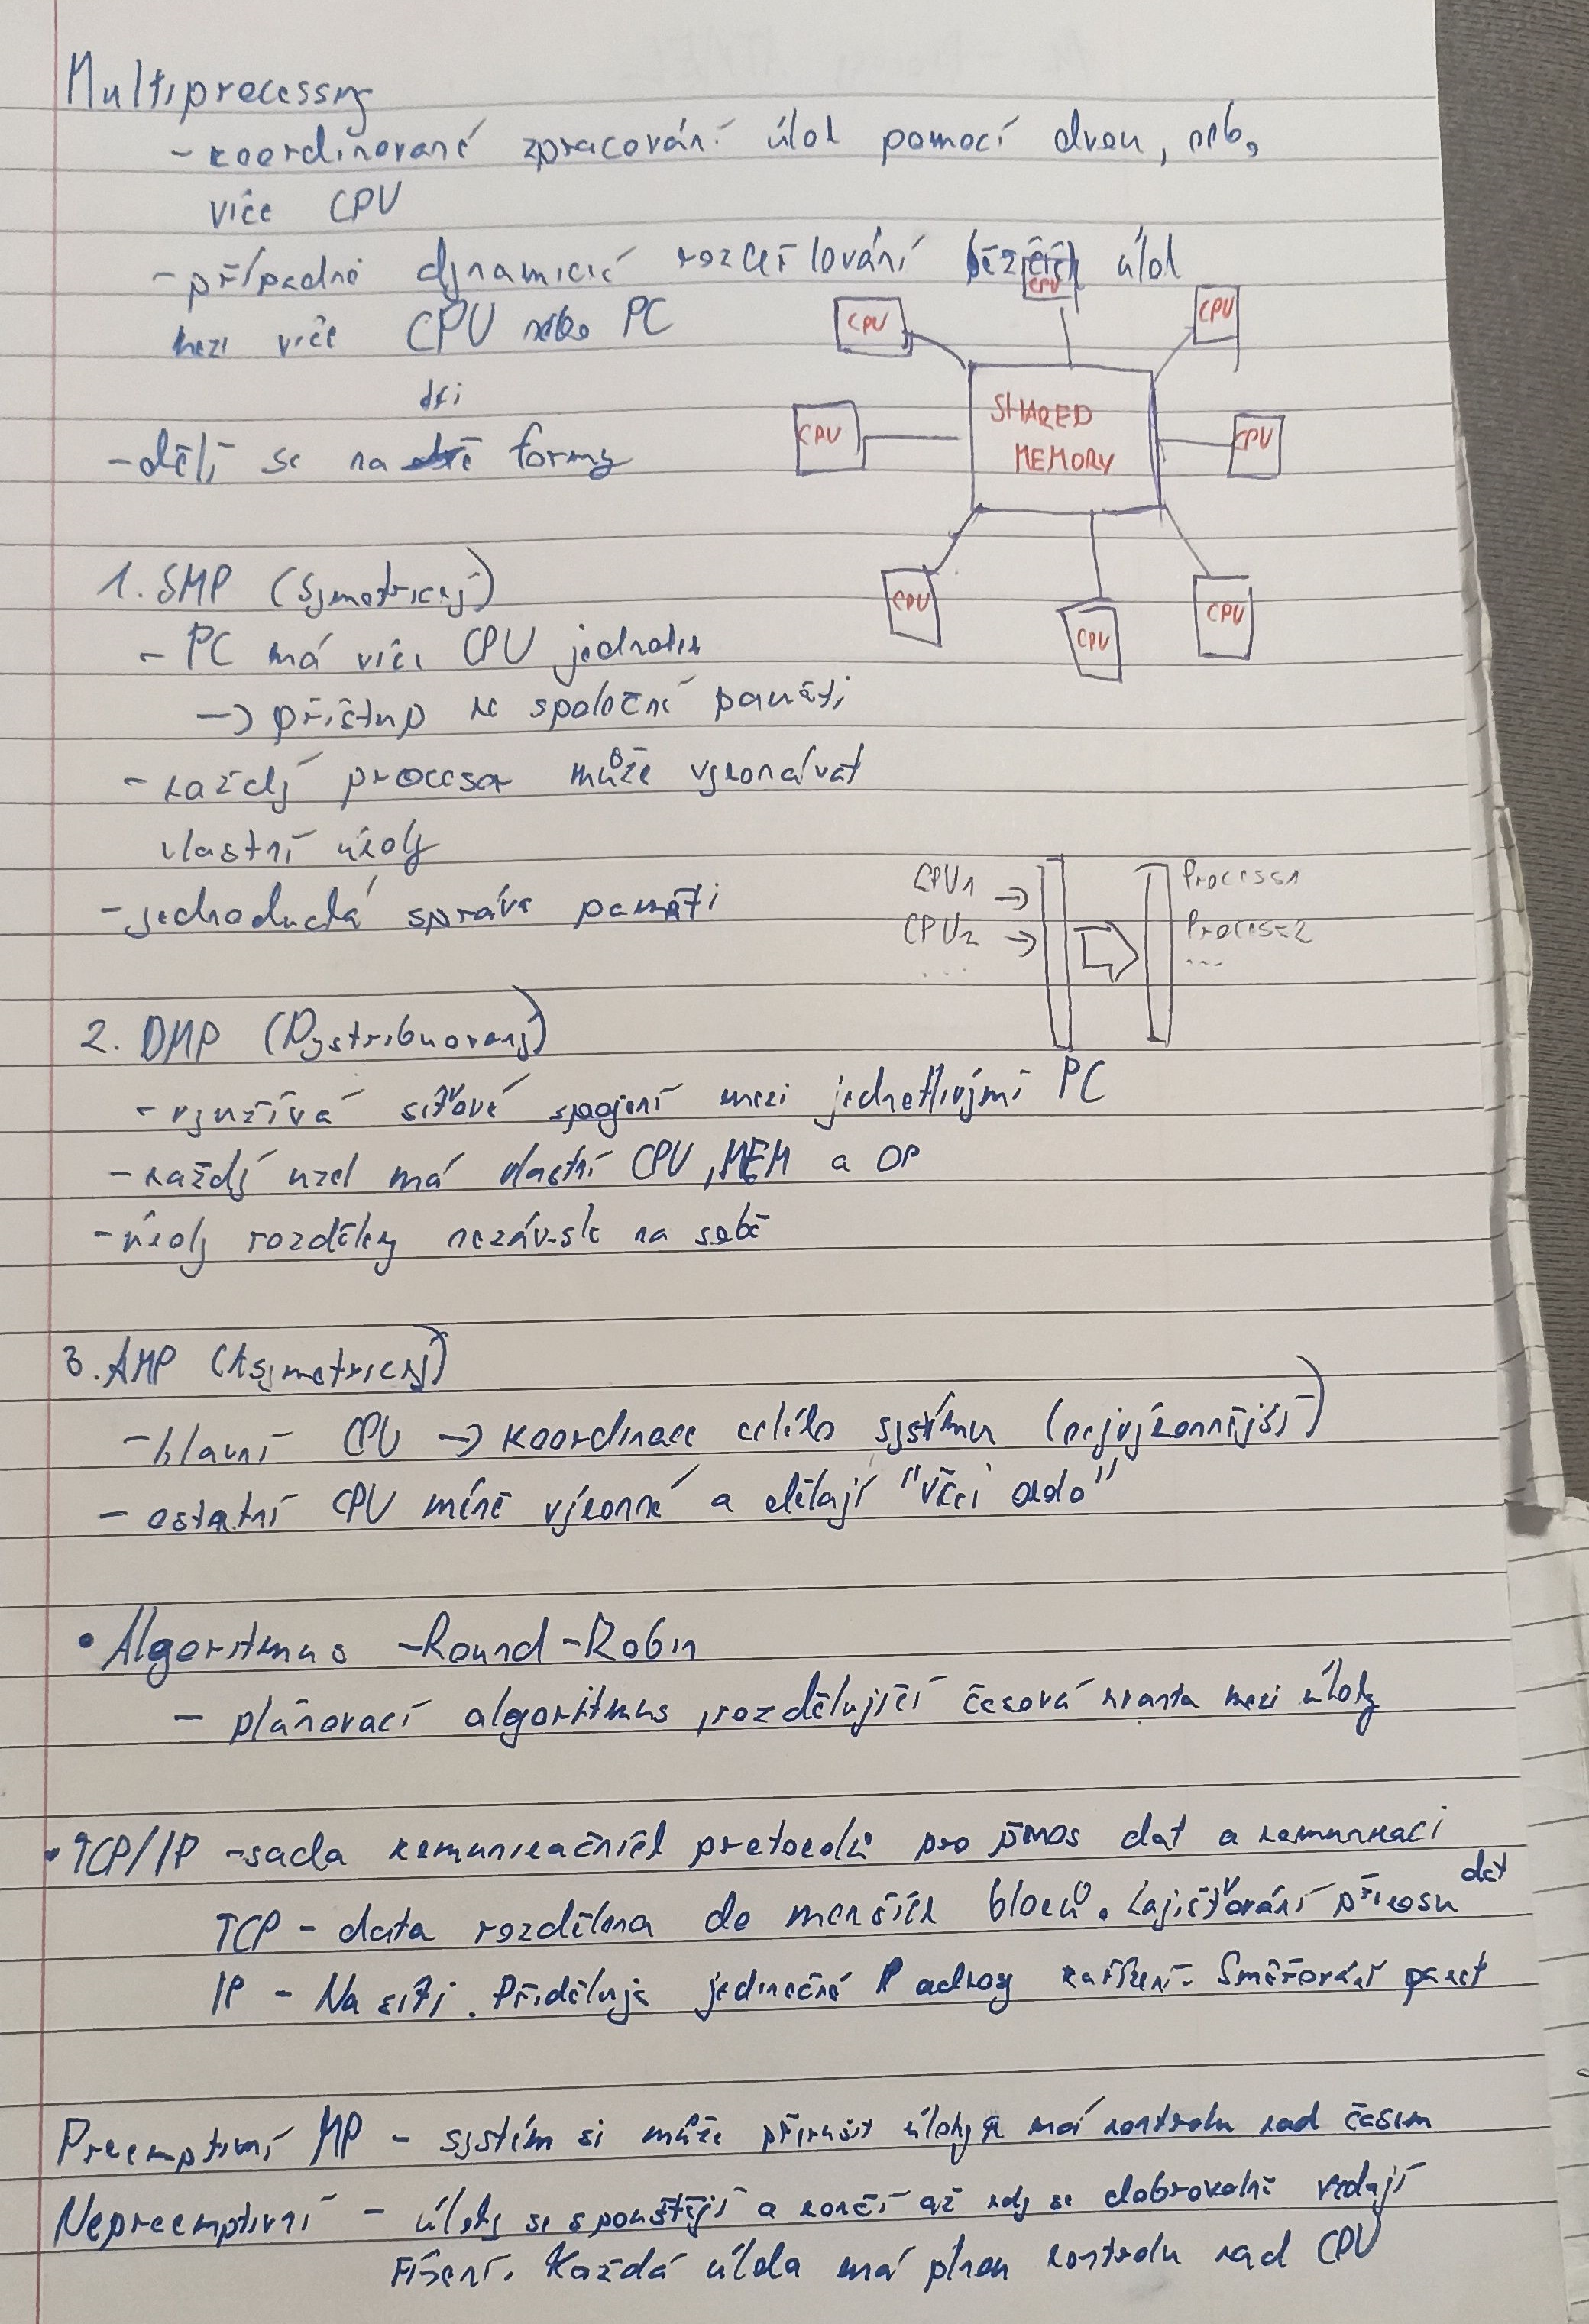 Multiprocessing
- koordinované zpracování úloh pomocí dvou, neb,
více CPU
- případně dynamické rozčeřlování běžících úloh
mezi více CPU nebo PC
CPU
CPU
CPU
CPU
SHARED
MEMORY
CPU
CPU
CPU
CPU
tři
- dělí se na formy
1. SMP (Symetrický)
- PC má více CPU jednotek
→ přístup ke společné paměti
- každý procesor může vykonávat
vlastní úkoly
- jednoduchá správa paměti
CPU1 →
CPU2 →
...
Process1
Process2
...
2. DMP (Dystribuovaný)
- využívá síťové spojení mezi jednotlivými PC
- každý uzel má vlastní CPU, MEM a OP
- úkoly rozděleny nezávisle na sobě
3. AMP (Asymetrický)
- hlavní CPU → koordinace celého systému (nejvýkonnější)
- ostatní CPU méně výkonné a dělají "věci okolo"
• Algoritmus - Round-Robin
- plánovací algoritmus, rozdělující časová kvanta mezi úlohy
• TCP/IP - sada komunikačních protokolů pro přenos dat a komunikaci
TCP - data rozdělena do menších bloků. Zajišťování přenosu dat
IP - Na síti. Přiděluje jedinečné IP adresy zařízení. Směřování paket
Preemptivní MP - systém si může přerušit úlohy a má kontrolu nad časem
Nepreemptivní - úlohy se spouštějí a končí až kdy se dobrovolně vzdají
řízení. Každá úloha má plnou kontrolu nad CPU